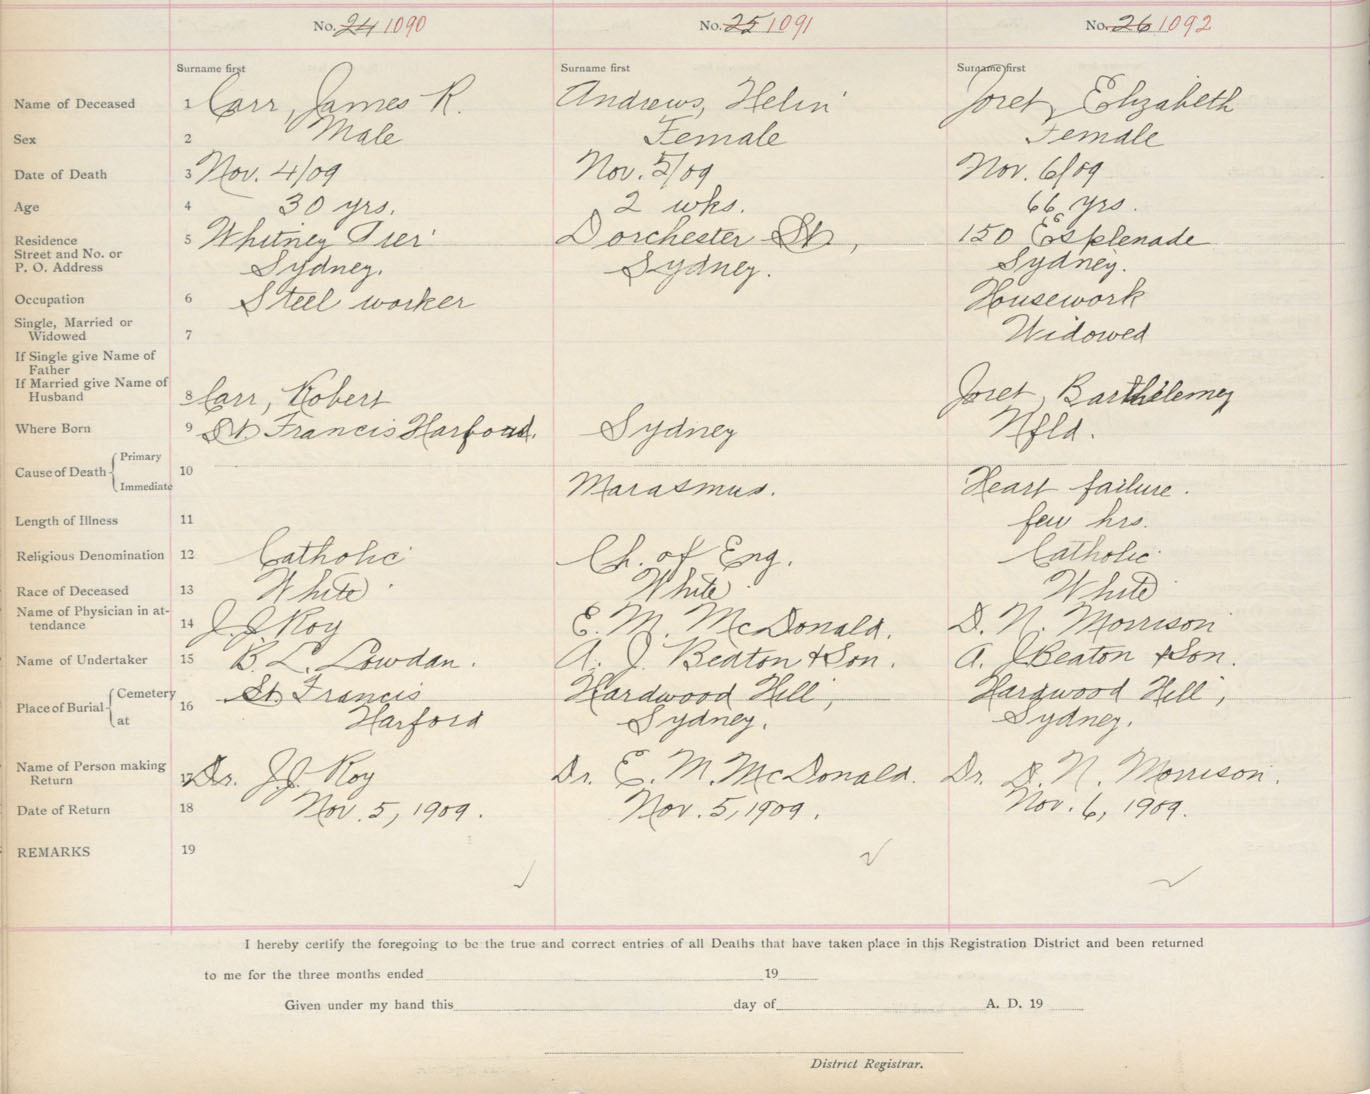 No. 24 1090 No. 25 1091 No. 26 1092
Surname first Surname first Surname first
Name of Deceased 1 Carr, James R. Andrews, Helin Joret, Elizabeth
Sex 2 Male Female Female
Date of Death 3 Nov. 4/09 Nov. 5/09 Nov. 6/09
Age 4 30 yrs. 2 wks. 66 yrs.
Residence 5 Whitney Pier Dorchester St, 150 Esplenade
Street and No. or
P. O. Address Sydney. Sydney. Sydney.
Occupation 6 Steel worker Housework
Single, Married or
Widowed 7 Widowed
If Single give Name of
Father
If Married give Name of
Husband 8 Carr, Robert Joret, Barthilemey
Where Born 9 St. Francis Harford. Sydney Nfld.
Primary
Cause of Death 10
Immediate Marasmus. Heart failure.
Length of Illness 11 few hrs.
Religious Denomination 12 Catholic Ch. of Eng. Catholic
Race of Deceased 13 White White White
Name of Physician in at-
tendance 14 J. J. Roy E. M. McDonald. D. N. Morrison
Name of Undertaker 15 B. L. Lowdan. A. J. Beaton & Son. A. J Beaton & Son.
Cemetery St. Francis Hardwood Hill, Hardwood Hill,
Place of Burial 16
at Harford Sydney. Sydney.
Name of Person making
Return 17 Dr. J. J. Roy Dr. E. M. McDonald. Dr. D. N. Morrison.
Date of Return 18 Nov. 5, 1909. Nov. 5, 1909. Nov. 6, 1909.
REMARKS 19
I hereby certify the foregoing to be the true and correct entries of all Deaths that have taken place in this Registration District and been returned
to me for the three months ended 19
Given under my hand this day of A. D. 19
District Registrar.